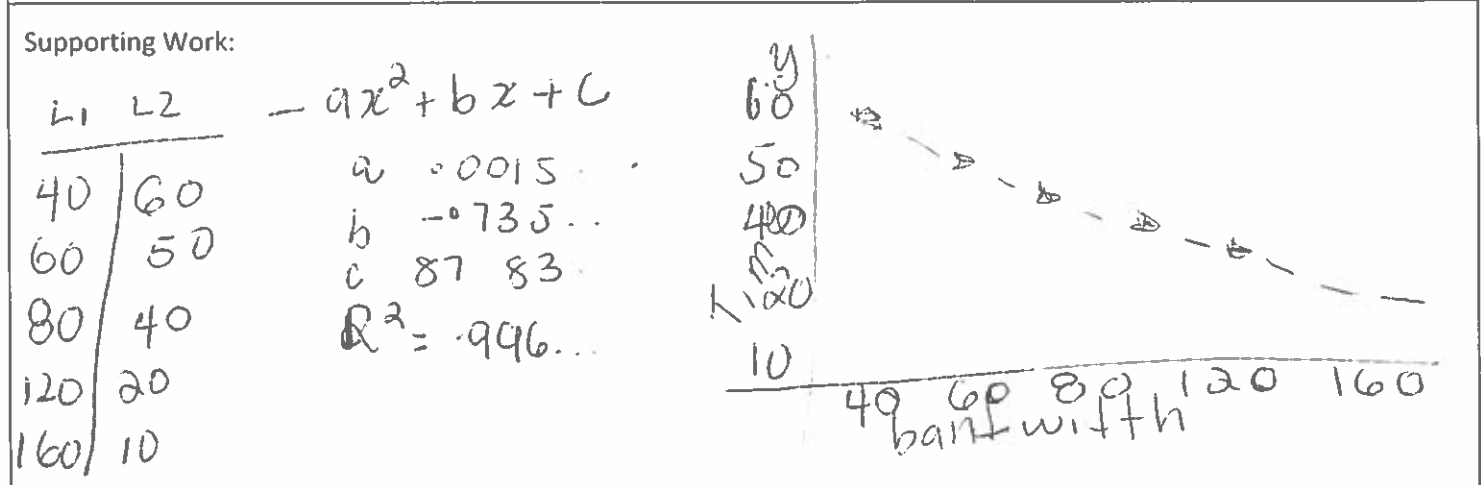 Supporting Work:
L1 L2
40 60
60 50
80 40
120 20
160 10
- ax² + bx + c
a .0015..
b -.735..
c 87 83.
R² = .996...
y
60
50
40
20
10
40 60 80 120 160
bantwitth